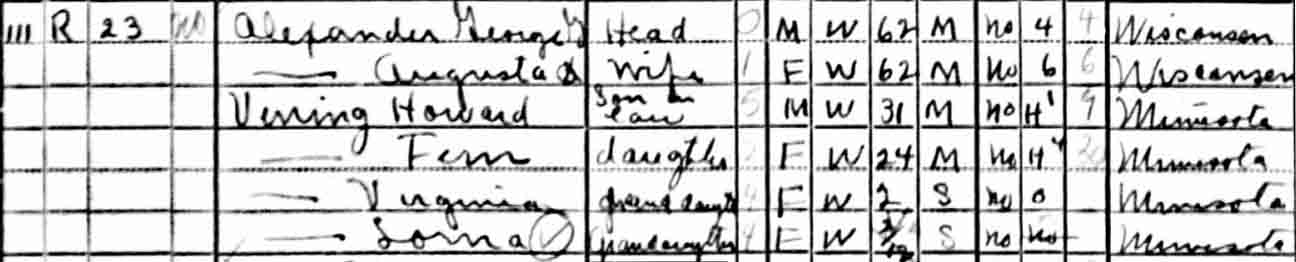 111 R 23 no Alexander George Head 0 M W 62 M no 4 4 Wisconsin
— Augusta Wife 1 F W 62 M no 6 6 Wisconsin
Vening Howard Son in law 5 M W 31 M no H1 9 Minnesota
— Fern daughter F W 24 M no H4 30 Minnesota
— Virginia grand daught F W 2 S no 0 Minnesota
— Lorna Grandaughter F W /12 S no no Minnesota